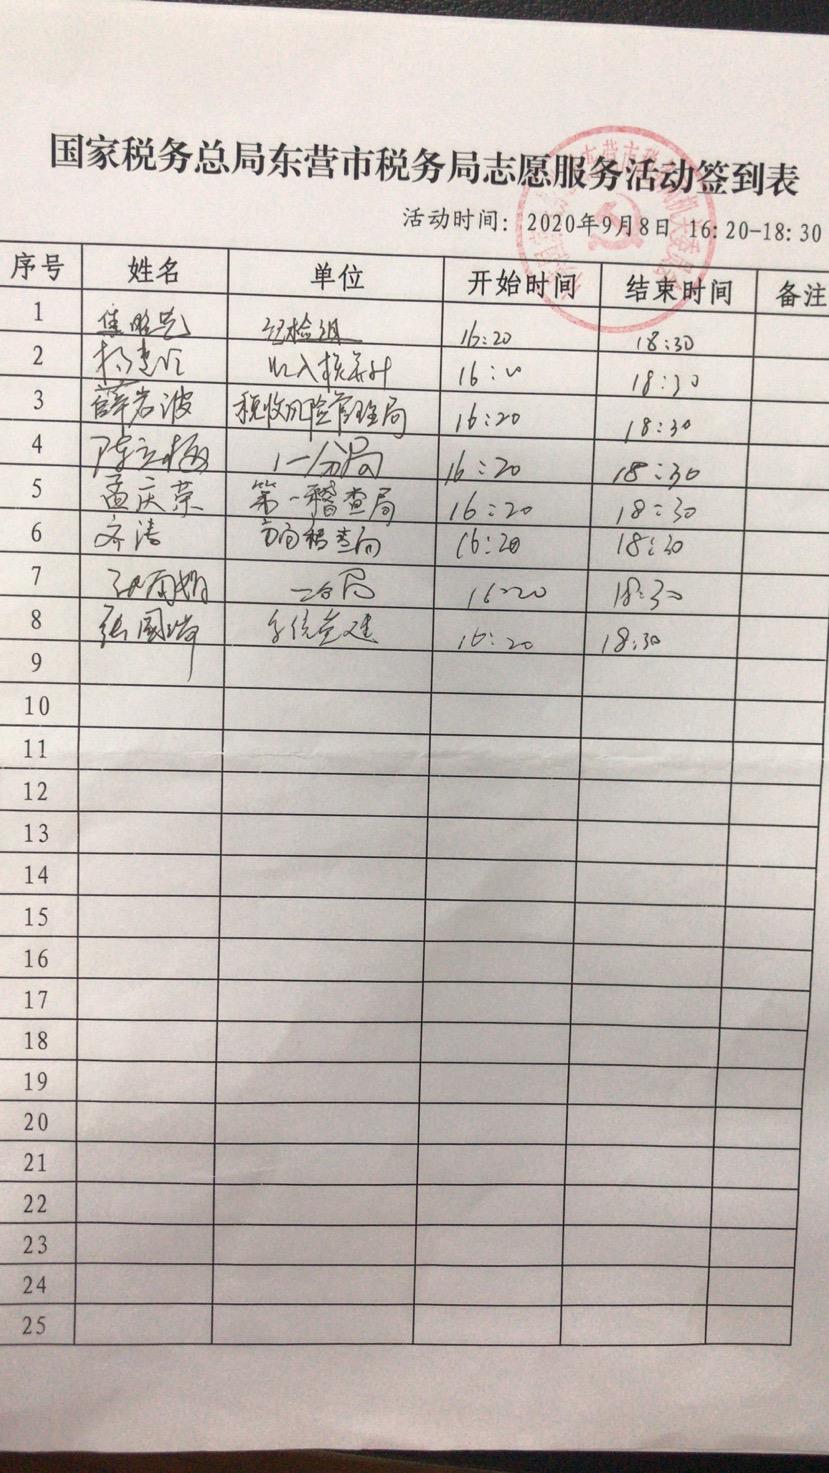 国家税务总局东营市税务局志愿服务活动签到表
活动时间：2020年9月8日 16:20-18:30
序号 姓名 单位 开始时间 结束时间 备注
1 纪检组 16:20 18:30
2 收入核算科 16:20 18:30
3 薛岩波 税收风险管理局 16:20 18:30
4 一分局 16:20 18:30
5 孟庆荣 第一稽查局 16:20 18:30
6 齐涛 稽查局 16:20 18:30
7 二分局 16:20 18:30
8 张国瑞 系统党建 16:20 18:30
9
10
11
12
13
14
15
16
17
18
19
20
21
22
23
24
25